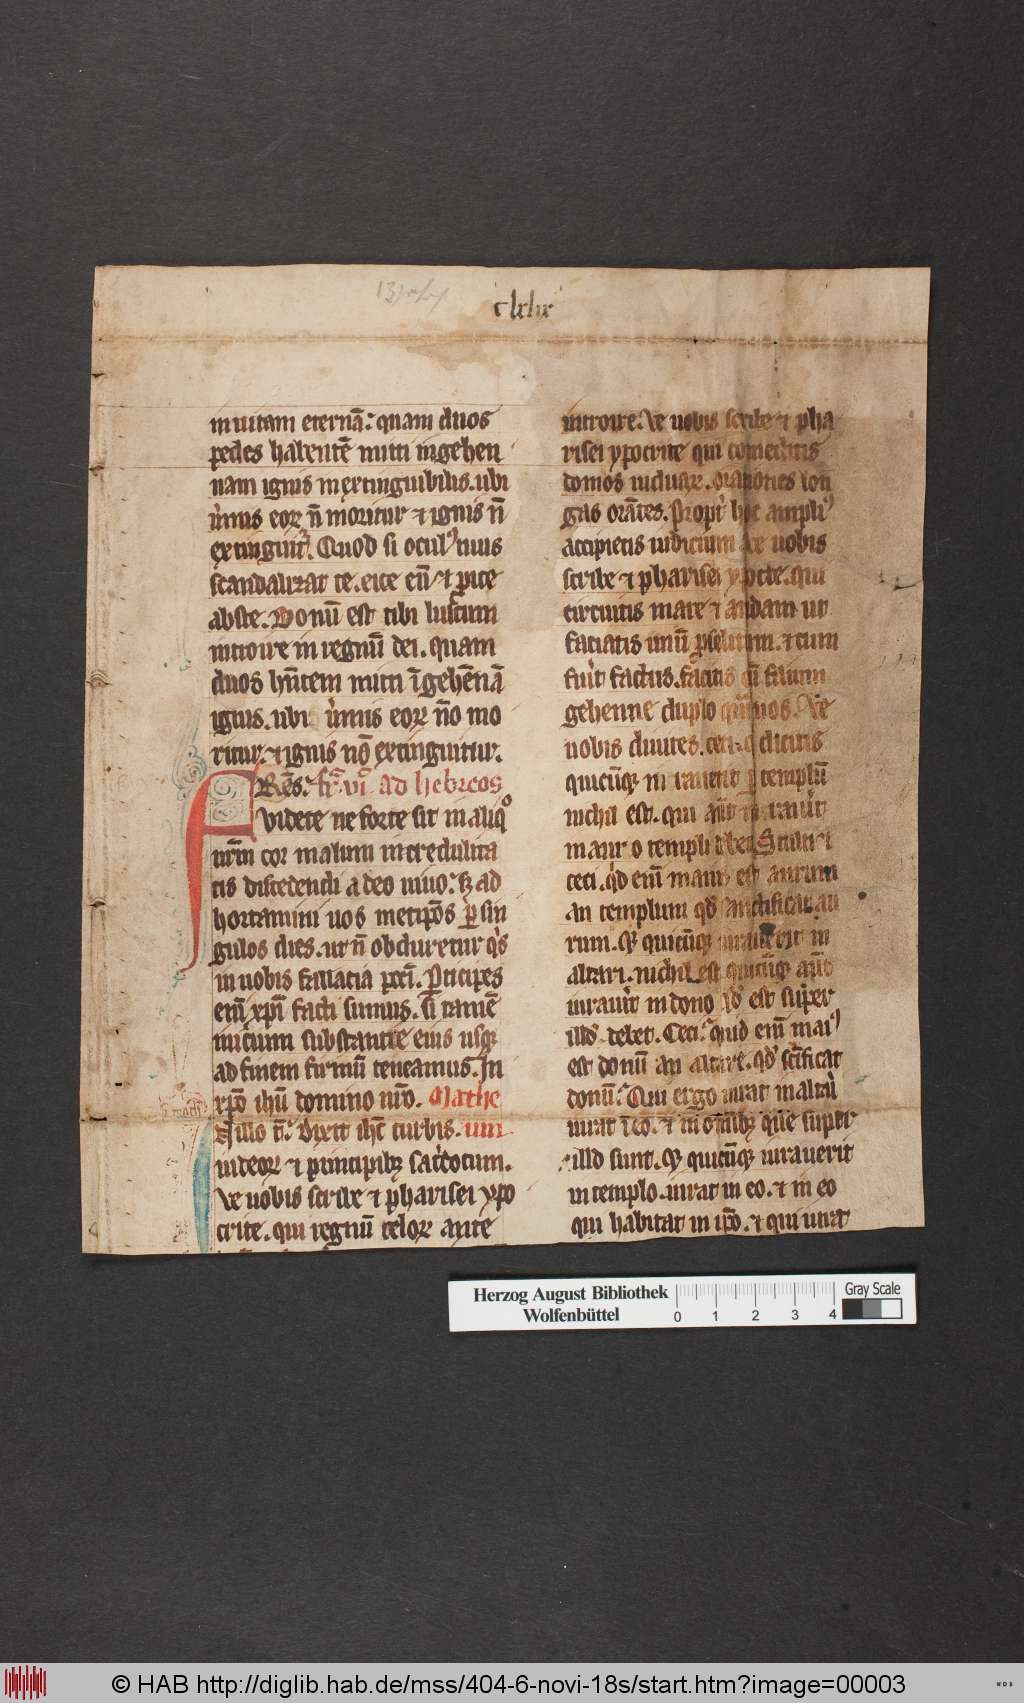 clxix
in uitam eternā: quam duos
pedes habentē mitti in gehen
nam ignis inextinguibilis. ubi
u̾mis eoꝝ n̄ moritur ⁊ ignis n̄
extinguit᷑. Quod si ocul᷒ tuus
scandalizat te. eice eū ⁊ ꝓice
abs te. Bonū est tibi luscum
introire in regnū dei. quam
duos hn̄tem mitti ī gehēnā
ignis. ubi u̾mis eoꝝ nō mo
ritur. ⁊ ignis nō extinguitur.
fr̄ vi ad hebreos
FRēs. Videte ne forte sit in aliqͦ
ur̄m cor malum incredulita
tis discedendi a deo uiuo: sꝫ ad
hortamini uos metip̄os ꝑ sin
gulos dies. ut n̄ obduretur q's
in uobis fallacia pcc̄i. Ꝑticipes
enī xp̄i facti sumus. si tamē
initium substantie eius usqꝫ
ad finem firmū teneamus. In
xp̄o ihū domino nr̄o. Mathe
In illo t̄. Dixit ihc̄ turbis. um
iudeoꝝ ⁊ principibꝫ sac̾dotum.
Ve uobis scribe ⁊ pharisei ypo
crite. qui regnū celoꝝ ante
introire. Ve uobis scribe ⁊ pha
risei ypocrite qui comeditis
domos uiduaꝝ. orationes lon
gas orātes. Propt̾ hoc ampli᷒
accipietis iudicium. Ve uobis
scribe ⁊ pharisei ypocte. qui
circuitis mare ⁊ aridam ut
faciatis unū ꝓselitum. ⁊ cum
fu̾it factus. facitis eū filium
gehenne duplo quā uos. Ve
uobis duces ceci. qui dicitis
quicūqꝫ iurauerit ꝑ templū
nichil est. qui aut̄ iurau̾it
in auro templi debet. Stulti ⁊
ceci. qͥd enī maius est aurum
an templum qd̄ sanctificat au
rum. Et quicūqꝫ iurauerit in
altari. nichil est. quicūqꝫ aut̄
iurau̾it in dono qd̄ est super
illd̄ debet. Ceci. quid enī mai᷒
est donū an altare. qd̄ scīficat
donū. Qui ergo iurat in altari
iurat ī eo. ⁊ in omibꝫ que super
illd̄ sunt. Et quicūqꝫ iurauerit
in templo. iurat in eo. ⁊ in eo
qui habitat in ip̄o. ⁊ qui iurat
Herzog August Bibliothek
Wolfenbüttel
0 1 2 3 4
Gray Scale
© HAB http://diglib.hab.de/mss/404-6-novi-18s/start.htm?image=00003